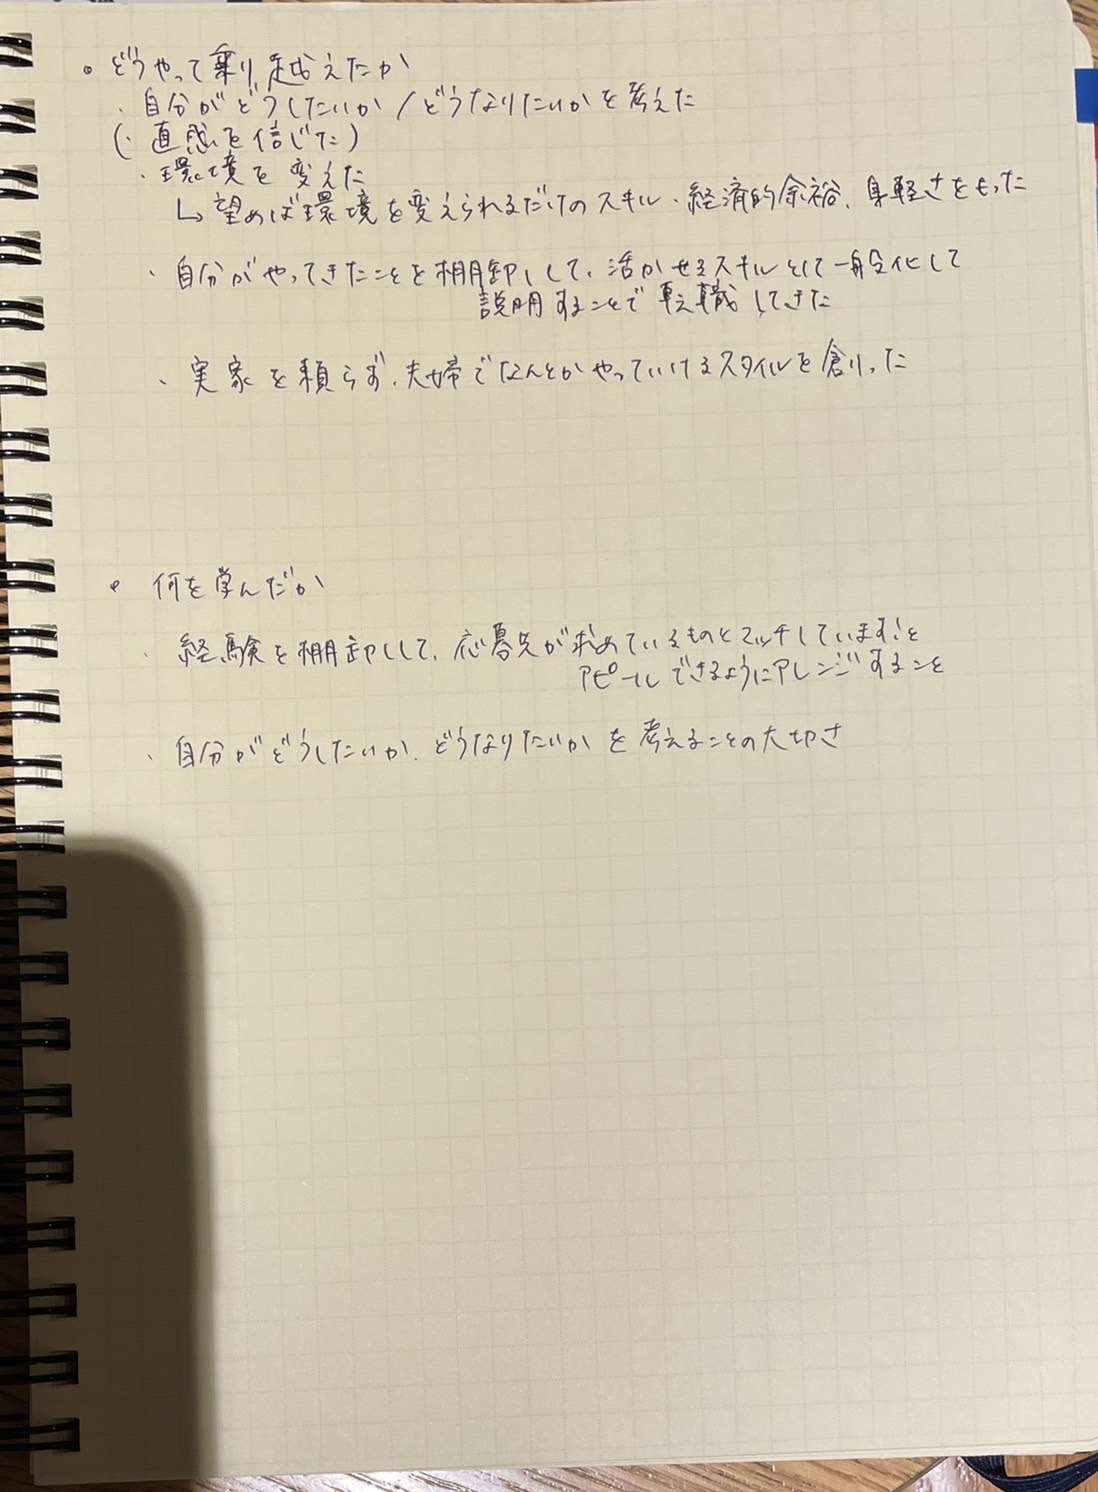 • どうやって乗り越えたか
・自分がどうしたいか/どうなりたいかを考えた
(・直感を信じた)
・環境を変えた
↳ 望めば環境を変えられるだけのスキル・経済的余裕、身軽さをもった
・自分がやってきたことを棚卸しして、活かせるスキルとして一般化して
説明することで転職してきた
・実家を頼らず、夫婦でなんとかやっていけるスタイルを創った
• 何を学んだか
・経験を棚卸しして、応募先が求めているものとマッチしています!と
アピールできるようにアレンジすること
・自分がどうしたいか、どうなりたいかを考えることの大切さ